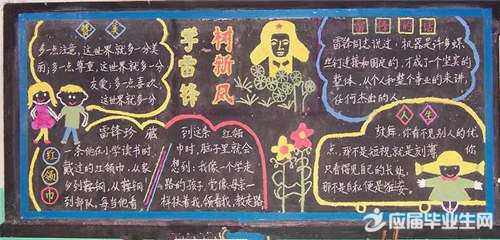 赞美
多一点注意，这世界就多一分美
丽；多一点尊重，这世界就多一分
友爱；多一点喜欢，
这世界就多一分
学雷锋
树新风
雷锋的话
雷锋同志说过，机器是许多螺
丝钉连接和固定的，才成了一个坚实的
整体，从个人和整个事业的来讲，
任何杰出的人。
红领巾
雷锋珍藏
一条他在小学读书时
戴过的红领巾，从家
乡到鞍钢，从鞍钢
到部队，每当他看
到这条红领
巾时，肚子里就会
想到：我像一个学走
路的孩子，党像母亲一
样扶着我，领着我，教走路
人生
鼓舞，你看不见别人的优
点，那不是短视，就是刻薄，你
只看得见自己的长处，
那不是自私便是狂妄。
应届毕业生网